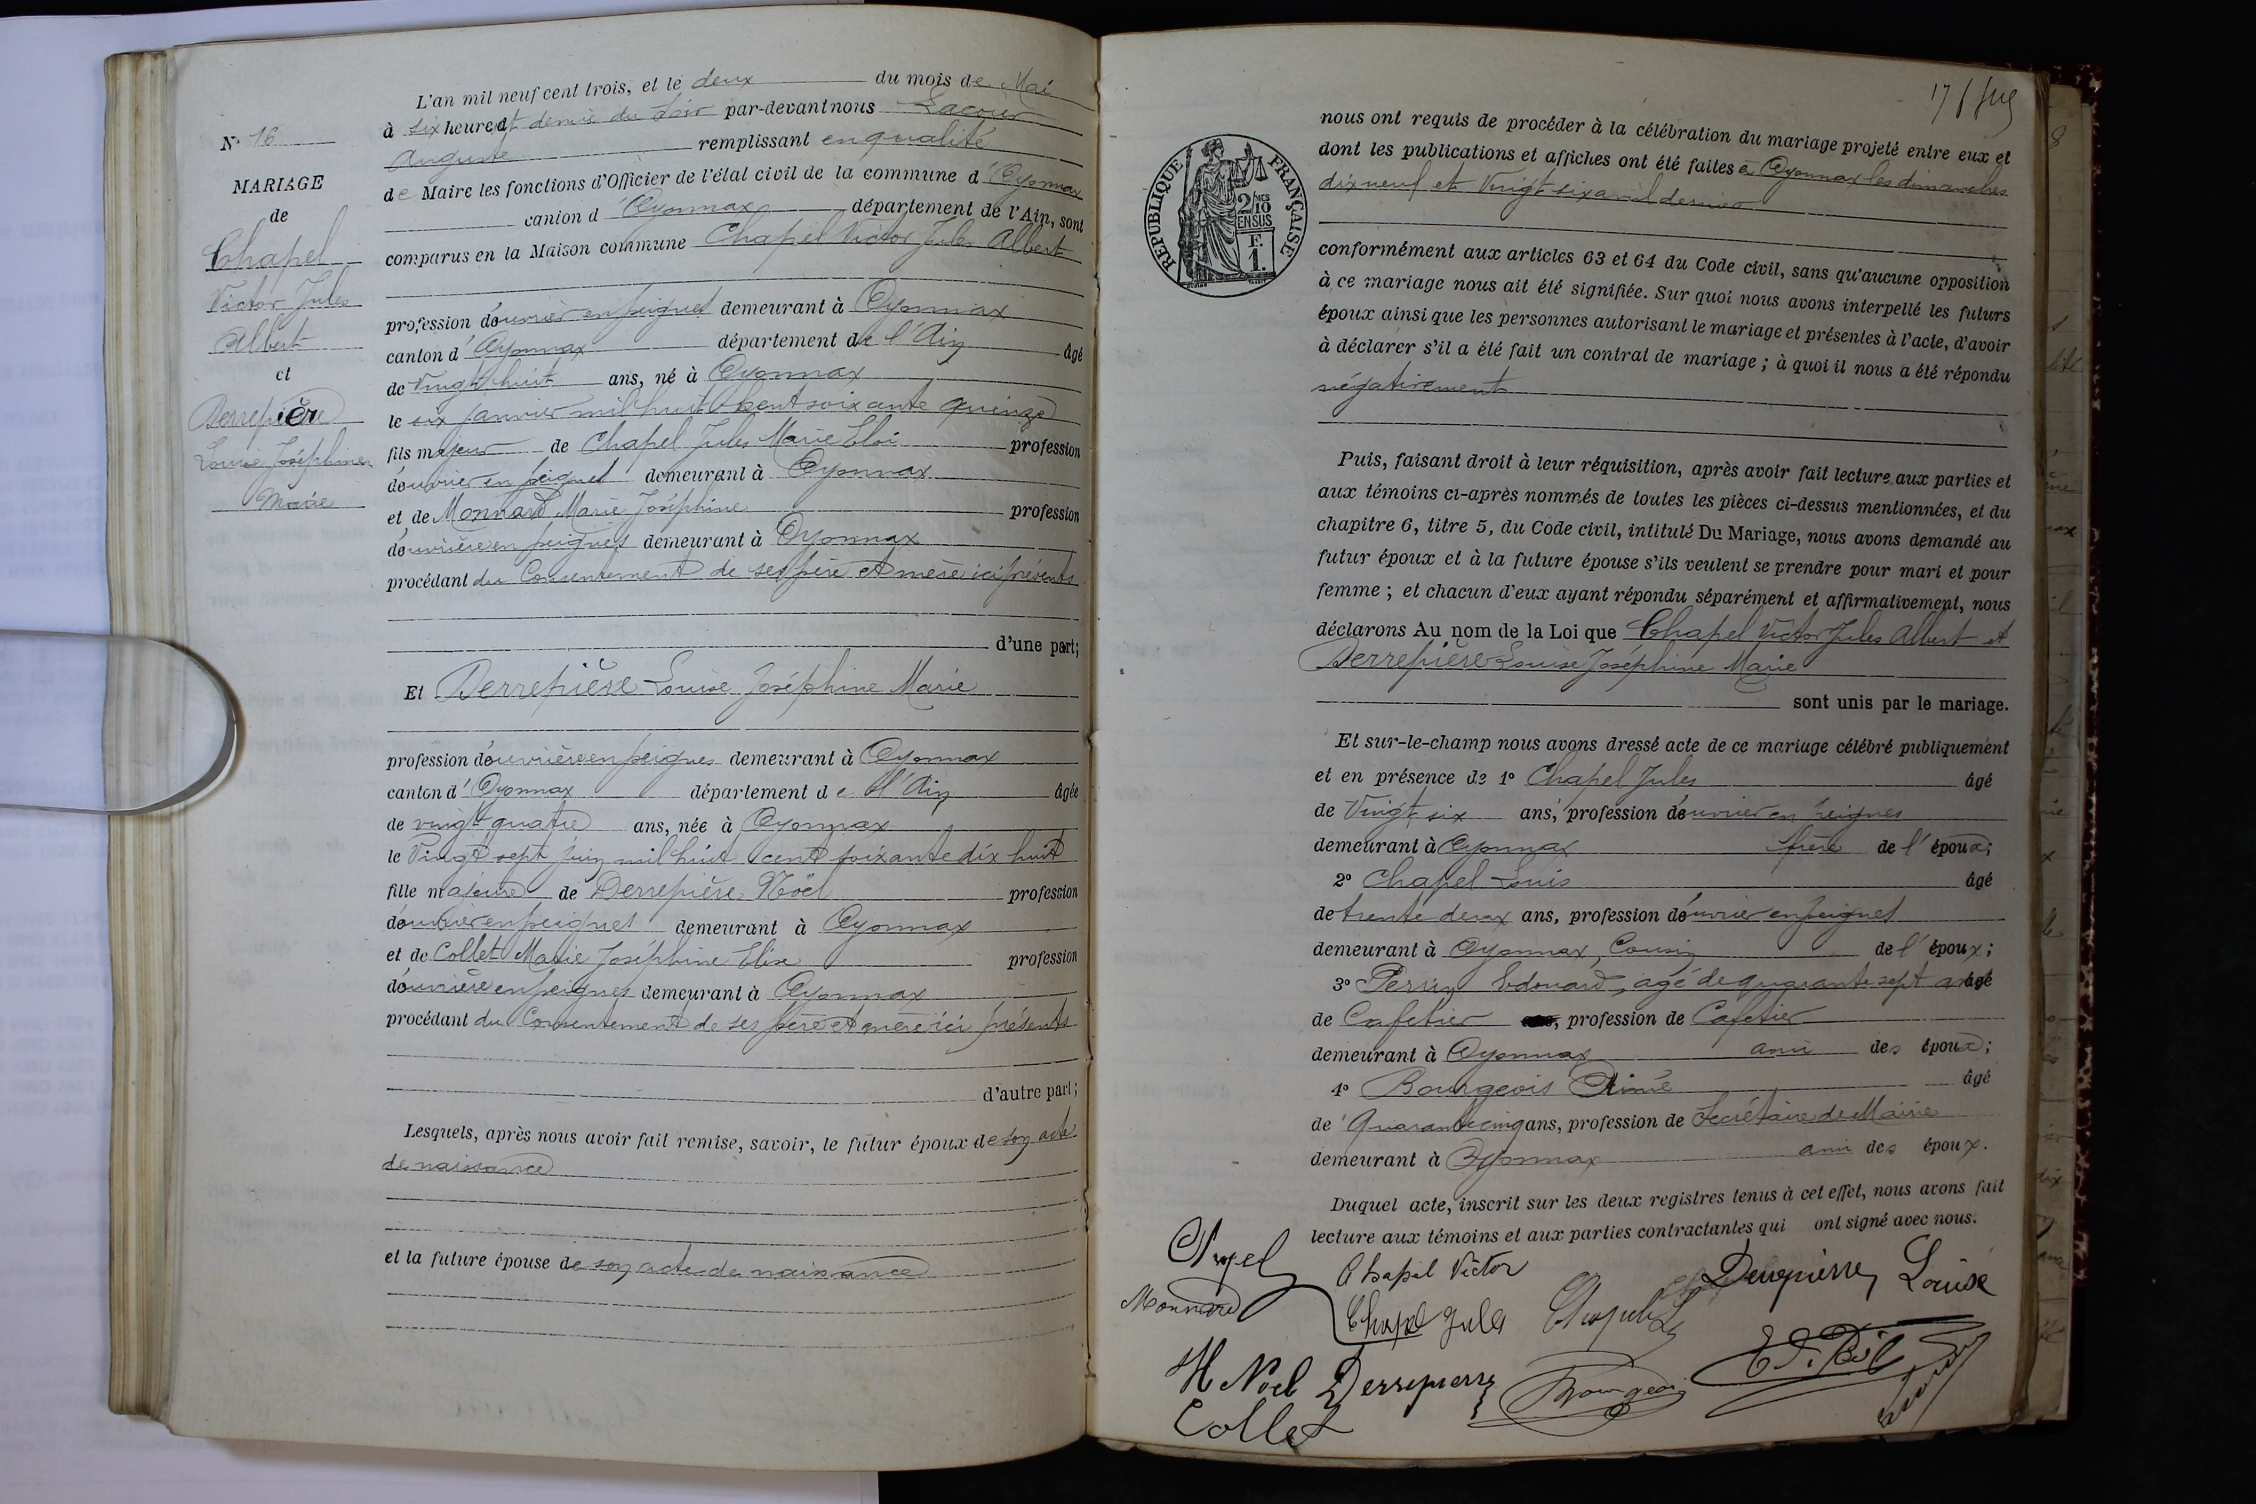 L'an mil neuf cent trois, et le deux du mois de Mai
à six heures et demie du soir par-devant nous Lacour
Auguste remplissant en qualité
de Maire les fonctions d'Officier de l'état civil de la commune d'Oyonnax
canton d'Oyonnax département de l'Ain, sont
comparus en la Maison commune Chapel Victor Jules Albert
profession d'ouvrier en peignes demeurant à Oyonnax
canton d'Oyonnax département de l'Ain âgé
de Vingt huit ans, né à Oyonnax
le six janvier mil huit cent soixante quinze
fils majeur de Chapel Jules Marie Eloi profession
d'ouvrier en peignes demeurant à Oyonnax
et de Monnard Marie Joséphine profession
d'ouvrière en peignes demeurant à Oyonnax
procédant du Consentement de ses père et mère ici présents
d'une part;
Et Derrepière Louise Joséphine Marie
profession d'ouvrière en peignes demeurant à Oyonnax
canton d'Oyonnax département de l'Ain âgée
de vingt quatre ans, née à Oyonnax
le Vingt sept juin mil huit cent soixante dix huit
fille majeure de Derrepière Noël profession
d'ouvrier en peignes demeurant à Oyonnax
et de Collet Marie Joséphine Elise profession
d'ouvrière en peignes demeurant à Oyonnax
procédant du Consentement de ses père et mère ici présents
d'autre part;
Lesquels, après nous avoir fait remise, savoir, le futur époux de son acte
de naissance
et la future épouse de son acte de naissance
N° 16
MARIAGE
de
Chapel
Victor Jules
Albert
et
Derrepière
Louise Joséphine
Marie
nous ont requis de procéder à la célébration du mariage projeté entre eux et
dont les publications et affiches ont été faites à Oyonnax les dimanches
dix neuf et Vingt six avril dernier
conformément aux articles 63 et 64 du Code civil, sans qu'aucune opposition
à ce mariage nous ait été signifiée. Sur quoi nous avons interpellé les futurs
époux ainsi que les personnes autorisant le mariage et présentes à l'acte, d'avoir
à déclarer s'il a été fait un contrat de mariage; à quoi il nous a été répondu
négativement
Puis, faisant droit à leur réquisition, après avoir fait lecture aux parties et
aux témoins ci-après nommés de toutes les pièces ci-dessus mentionnées, et du
chapitre 6, titre 5, du Code civil, intitulé Du Mariage, nous avons demandé au
futur époux et à la future épouse s'ils veulent se prendre pour mari et pour
femme; et chacun d'eux ayant répondu séparément et affirmativement, nous
déclarons Au nom de la Loi que Chapel Victor Jules Albert et
Derrepière Louise Joséphine Marie
sont unis par le mariage.
Et sur-le-champ nous avons dressé acte de ce mariage célébré publiquement
et en présence de 1° Chapel Jules âgé
de Vingt six ans, profession d'ouvrier en peignes
demeurant à Oyonnax frère de l'époux;
2° Chapel Louis âgé
de trente deux ans, profession d'ouvrier en peignes
demeurant à Oyonnax, Cousin de l'époux;
3° Perrin Edouard, agé de quarante sept ans âgé
de Cafetier profession de Cafetier
demeurant à Oyonnax ami des époux;
4° Bourgeois Aimé âgé
de Quarante cinq ans, profession de Secrétaire de Mairie
demeurant à Oyonnax ami des époux.
Duquel acte, inscrit sur les deux registres tenus à cet effet, nous avons fait
lecture aux témoins et aux parties contractantes qui ont signé avec nous.
Chapel Chapel Victor Derrepierre Louise
Monnard Chapel Jules Chapel L
H Noel Derrepierre Bourgeois
Collet
RÉPUBLIQUE FRANÇAISE
2/10 MES
EN SUS
F.
1.